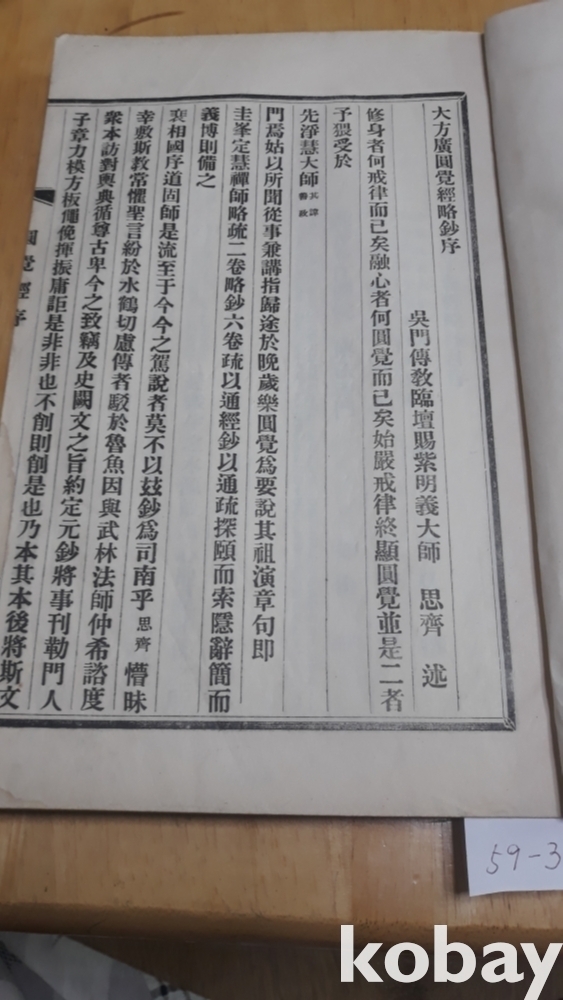 大方廣圓覺經略鈔序
吳門傳教臨壇賜紫明義大師 思齊 述
修身者何戒律而已矣融心者何圓覺而已矣始嚴戒律終顯圓覺並是二者
予猥受於
先淨慧大師其諱
門焉姑以所聞從事兼講指歸途於晚歲樂圓覺爲要說其祖演章句即
圭峯定慧禪師略疏二卷略鈔六卷疏以通經鈔以通疏探賾而索隱辭簡而
義博則備之
裴相國序道固師是流至于今今之駕說者莫不以玆鈔爲司南乎思齊懵昧
幸敷斯教常懼聖言紛於水鶴切慮傳者駁於魯魚因與武林法師仲希諮度
衆本訪對輿典循尊古卑今之致竊及史闕文之旨約定元鈔將事刊勒門人
子章力模方板僶俛揮振庸詎是非非也不削則削是也乃本其本後將斯文
圓覺經序
59-3
kobay